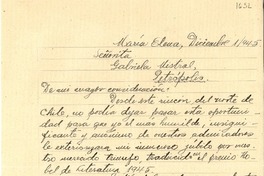 1632
María Elena, Diciembre 1/945.
Señorita
Gabriela Mistral,
Petrópolis.
De mi mayor consideración:
Desde este rincón del norte de
Chile, no podía dejar pasar esta oportuni
dad para que yo el mas humilde, insigni-
ficante y anónimo de vuestros admiradores
le exteriorizara mi inmenso júbilo por vues-
tro merecido triunfo, traducido "el premio No-
bel de Literatura 1945.